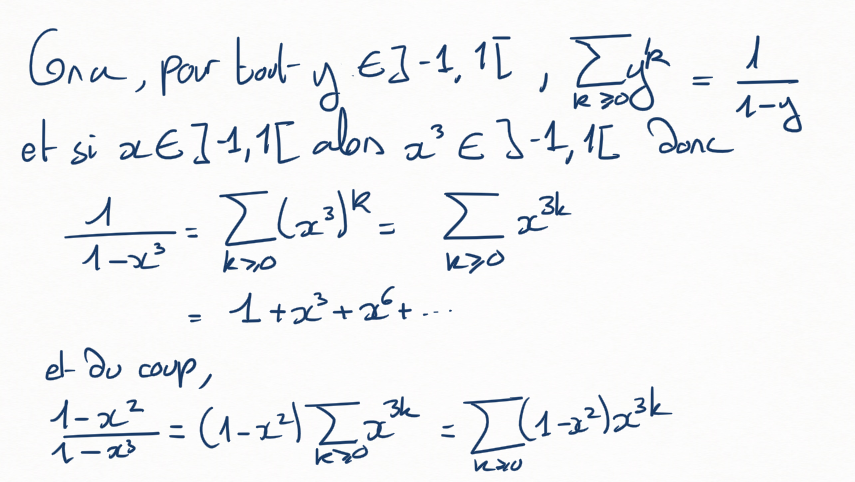 On a, pour tout y ∈ ]-1, 1[ , ∑_{k≥0} y^k = 1/(1-y)
et si x ∈ ]-1,1[ alors x^3 ∈ ]-1,1[ donc
1/(1-x^3) = ∑_{k≥0} (x^3)^k = ∑_{k≥0} x^{3k}
= 1 + x^3 + x^6 + ...
et du coup,
(1-x^2)/(1-x^3) = (1-x^2) ∑_{k≥0} x^{3k} = ∑_{k≥0} (1-x^2) x^{3k}